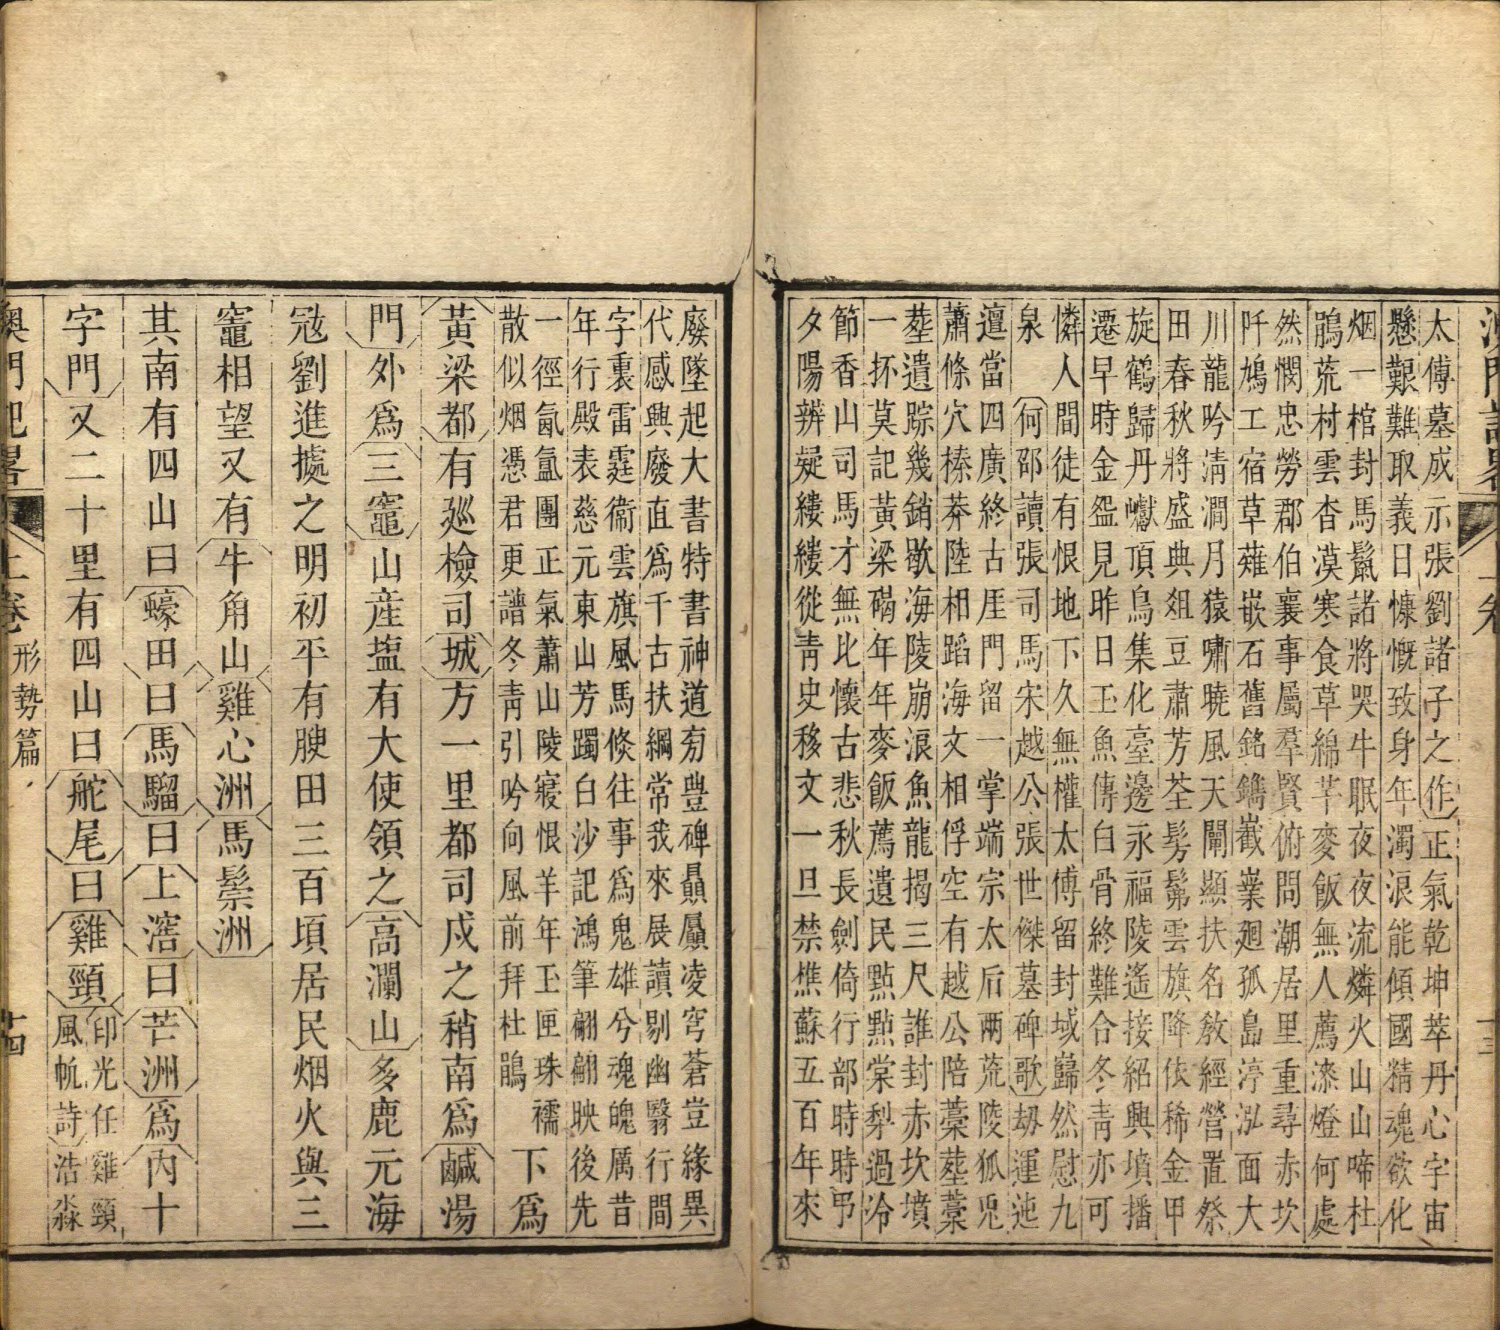 太傅墓成示張劉諸子之作正氣乾坤萃丹心宇宙
懸艱難取義日慷慨致身年濁浪能傾國精魂欲化
烟一棺封馬鬣諸將哭牛眠夜夜流燐火山山啼杜
鵑荒村雲杳漠寒食草綿芊麥飯無人薦漆燈何處
然憫忠勞郡伯襄事屬羣賢俯問潮居里重尋赤坎
阡鳩工宿草薙嵌石舊銘鐫嶻嶪廻孤島渟泓面大
川龍吟清澗月猿嘯曉風天闡顯扶名敎經營置祭
田春秋將盛典俎豆肅芳荃髣髴雲旗降依稀金甲
旋鶴歸丹巘頂鳥集化臺邊永福陵遙接紹興墳播
遷早時金盌見昨日玉魚傳白骨終難合冬青亦可
憐人間徒有恨地下久無權太傅留封域巋然慰九
泉 何邵讀張司馬宋越公張世傑墓碑歌刼運迍
邅當四廣終古厓門留一掌端宗太后兩荒陵狐兎
蕭條穴榛莽陸相蹈海文相俘空有越公陪藁塟藁
塟遺踪幾銷歇海陵崩浪魚龍揭三尺誰封赤坎墳
一抔莫記黃梁碣年年麥飯薦遺民點點棠梨過冷
節香山司馬才無比懷古悲秋長劍倚行部時時弔
夕陽辨疑縷縷從青史移文一旦禁樵蘇五百年來
廢墜起大書特書神道旁豐碑贔屭凌穹蒼豈緣異
代感興廢直爲千古扶綱常我來展讀剔幽翳行間
字裏雷霆衞雲旗風馬倐往事爲鬼雄兮魂魄厲昔
年行殿表慈元東山芳躅白沙記鴻筆翩翩映後先
一徑氤氳團正氣蕭山陵寢恨羊年玉匣珠襦
散似烟憑君更譜冬青引吟向風前拜杜鵑
下爲
黃梁都有廵檢司城方一里都司戍之稍南爲鹹湯
門外爲三竈山産塩有大使領之高瀾山多鹿元海
宼劉進㨿之明初平有腴田三百頃居民烟火與三
竈相望又有牛角山雞心洲馬鬃洲
其南有四山曰蠔田曰馬騮曰上滘曰芒洲爲內十
字門又二十里有四山曰舵尾曰雞頸
印光任雞頸
風帆詩浩淼
澳門記畧
上卷
形勢篇
十四